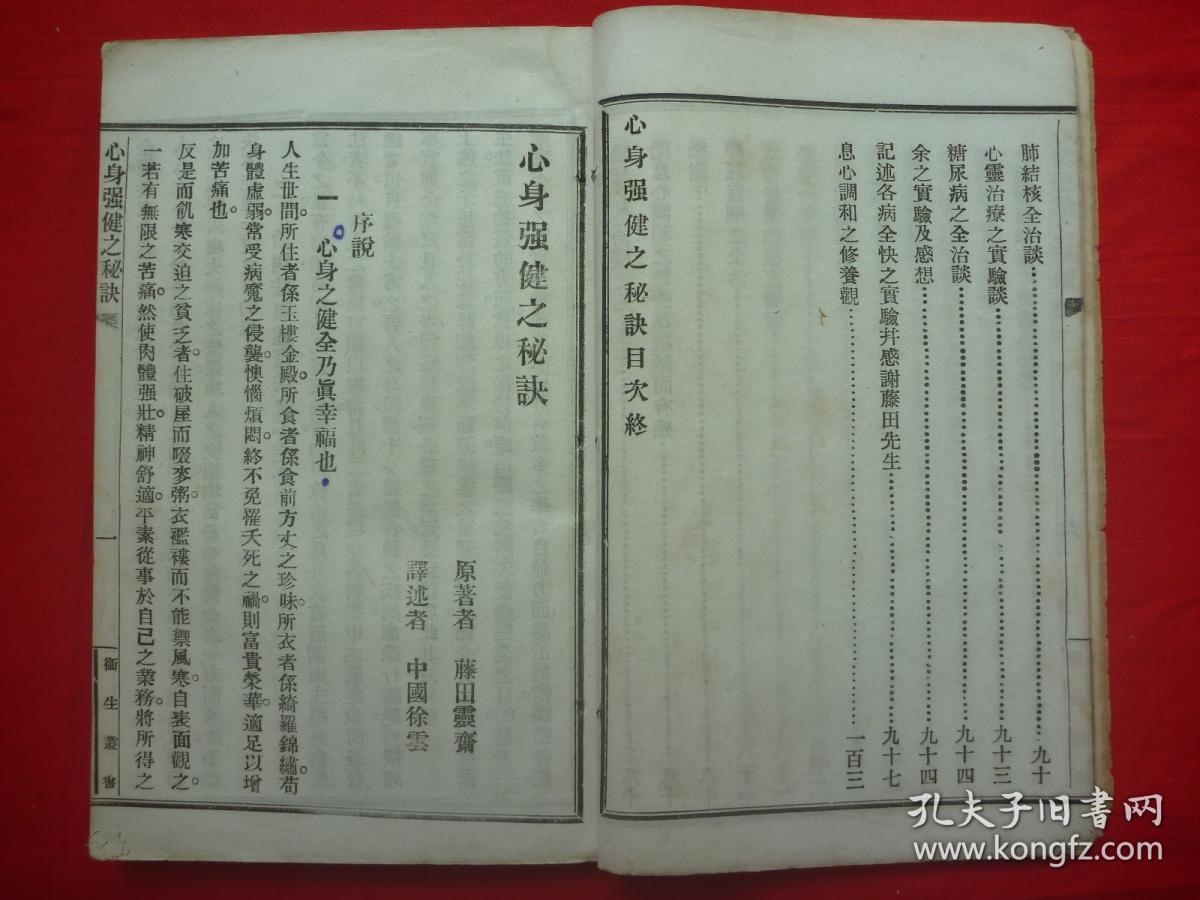 肺結核全治談……………………九十
心靈治療之實驗談……………………九十三
糖尿病之全治談……………………九十四
余之實驗及感想……………………九十四
記述各病全快之實驗幷感謝藤田先生……………………九十七
息心調和之修養觀……………………一百三
心身强健之秘訣目次終
心身强健之秘訣
原著者 藤田靈齋
譯述者 中國徐雲
序說
一 心身之健全乃眞幸福也
人生世間。所住者係玉樓金殿。所食者係食前方丈之珍味。所衣者係綺羅錦繡。苟
身體虛弱。常受病魔之侵襲。懊惱煩悶。終不免罹夭死之禍。則富貴榮華。適足以增
加苦痛也。
反是而飢寒交迫之貧乏者。住破屋而啜麥粥。衣襤褸而不能禦風寒。自表面觀之。
一若有無限之苦痛。然使肉體强壯。精神舒適。平素從事於自己之業務。將所得之
心身强健之秘訣
一
衞生叢書
孔夫子旧书网
www.kongfz.com